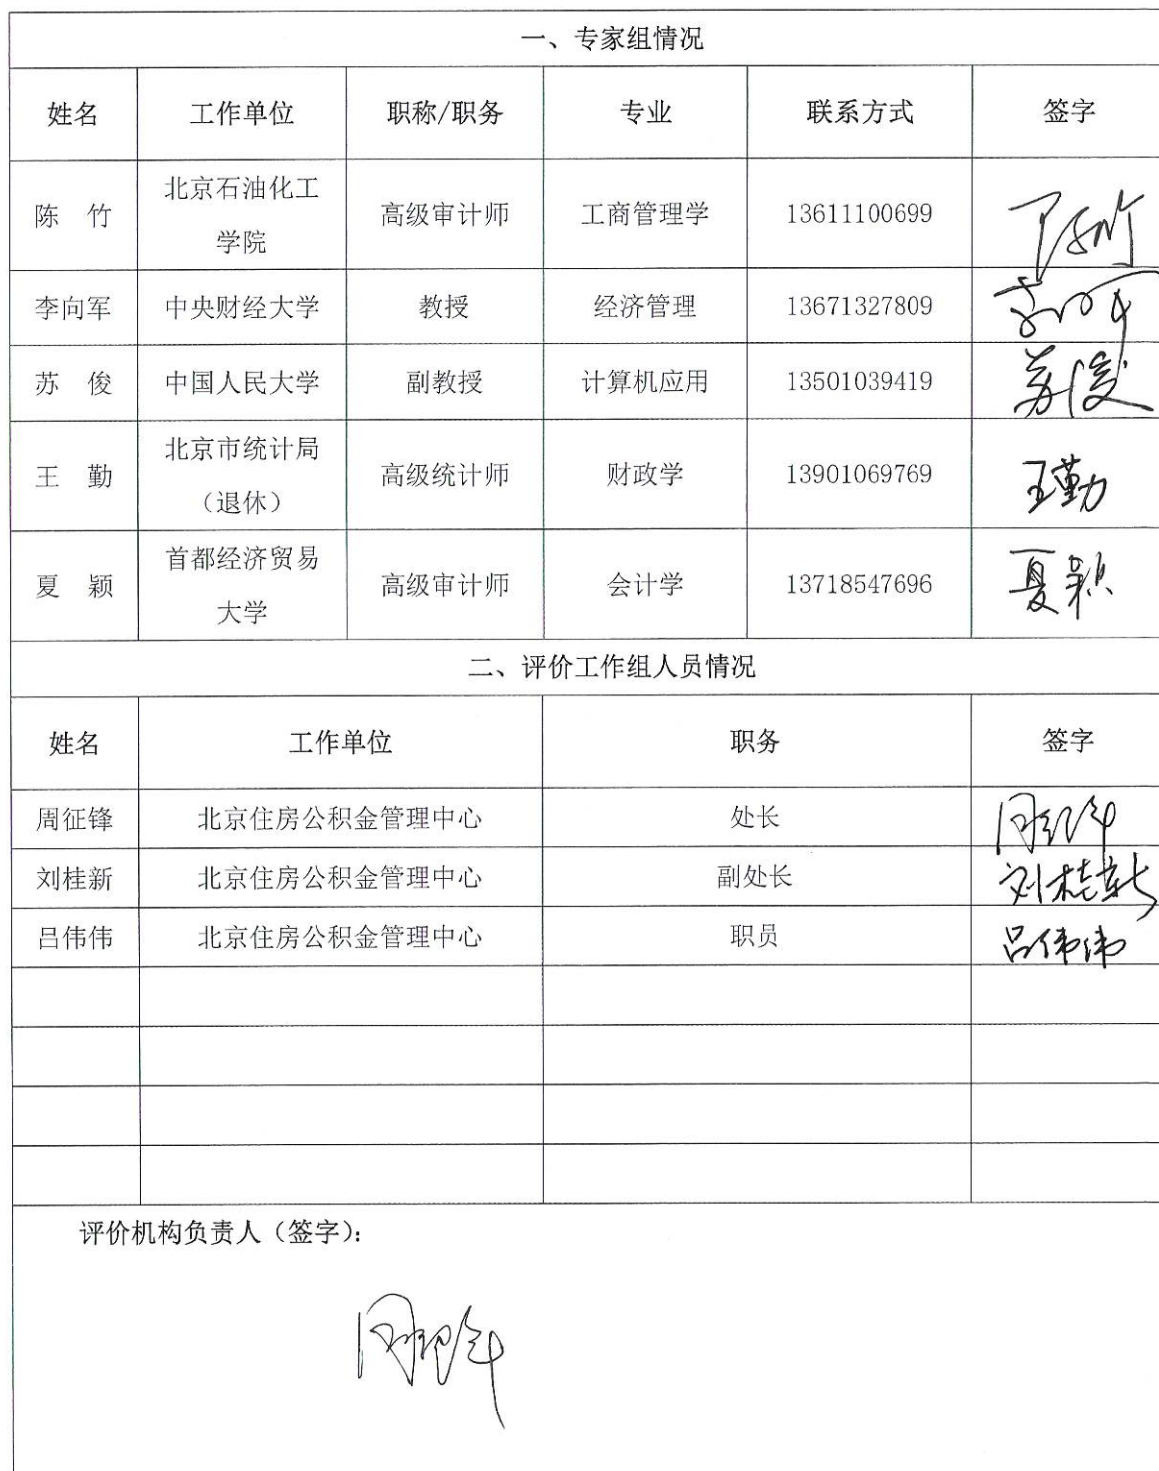 一、专家组情况
姓名 工作单位 职称/职务 专业 联系方式 签字
陈 竹 北京石油化工 高级审计师 工商管理学 13611100699 陈竹
学院
李向军 中央财经大学 教授 经济管理 13671327809 李向军
苏 俊 中国人民大学 副教授 计算机应用 13501039419 苏俊
王 勤 北京市统计局 高级统计师 财政学 13901069769 王勤
（退休）
夏 颖 首都经济贸易 高级审计师 会计学 13718547696 夏颖
大学
二、评价工作组人员情况
姓名 工作单位 职务 签字
周征锋 北京住房公积金管理中心 处长 周征锋
刘桂新 北京住房公积金管理中心 副处长 刘桂新
吕伟伟 北京住房公积金管理中心 职员 吕伟伟
评价机构负责人（签字）：
周征锋